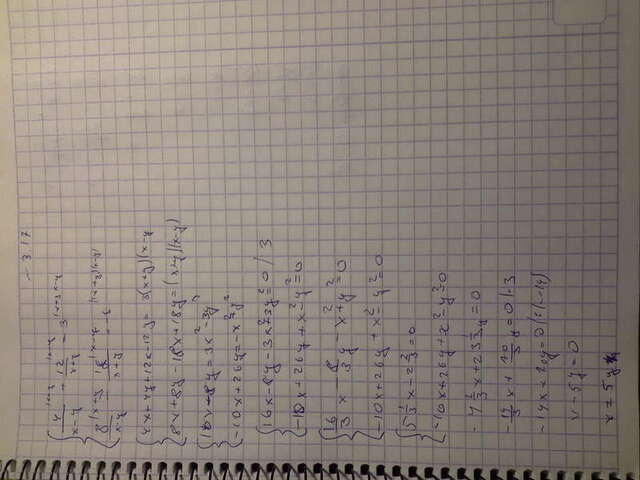 3.17
4/(x-y) + 12/(x+y) = 3
8/(x-y) - 18/(x+y) = -1
4x+4y+12x-12y = 3(x+y)(x-y)
8x+8y-18x+18y = -(x+y)(x-y)
16x-8y = 3x²-3y²
-10x+26y = -x²+y²
16x-8y-3x²+3y²=0 /:3
-10x+26y+x²-y²=0
16/3 x - 8/3 y - x²+y²=0
-10x+26y+x²-y²=0
5 1/3 x - 2 2/3 y=0
-10x+26y+x²-y²=0
-4 2/3 x + 23 1/3 y=0
-14/3 x + 70/3 y = 0 |·3
-14x+70y=0 |:(-14)
x-5y=0
x=5y